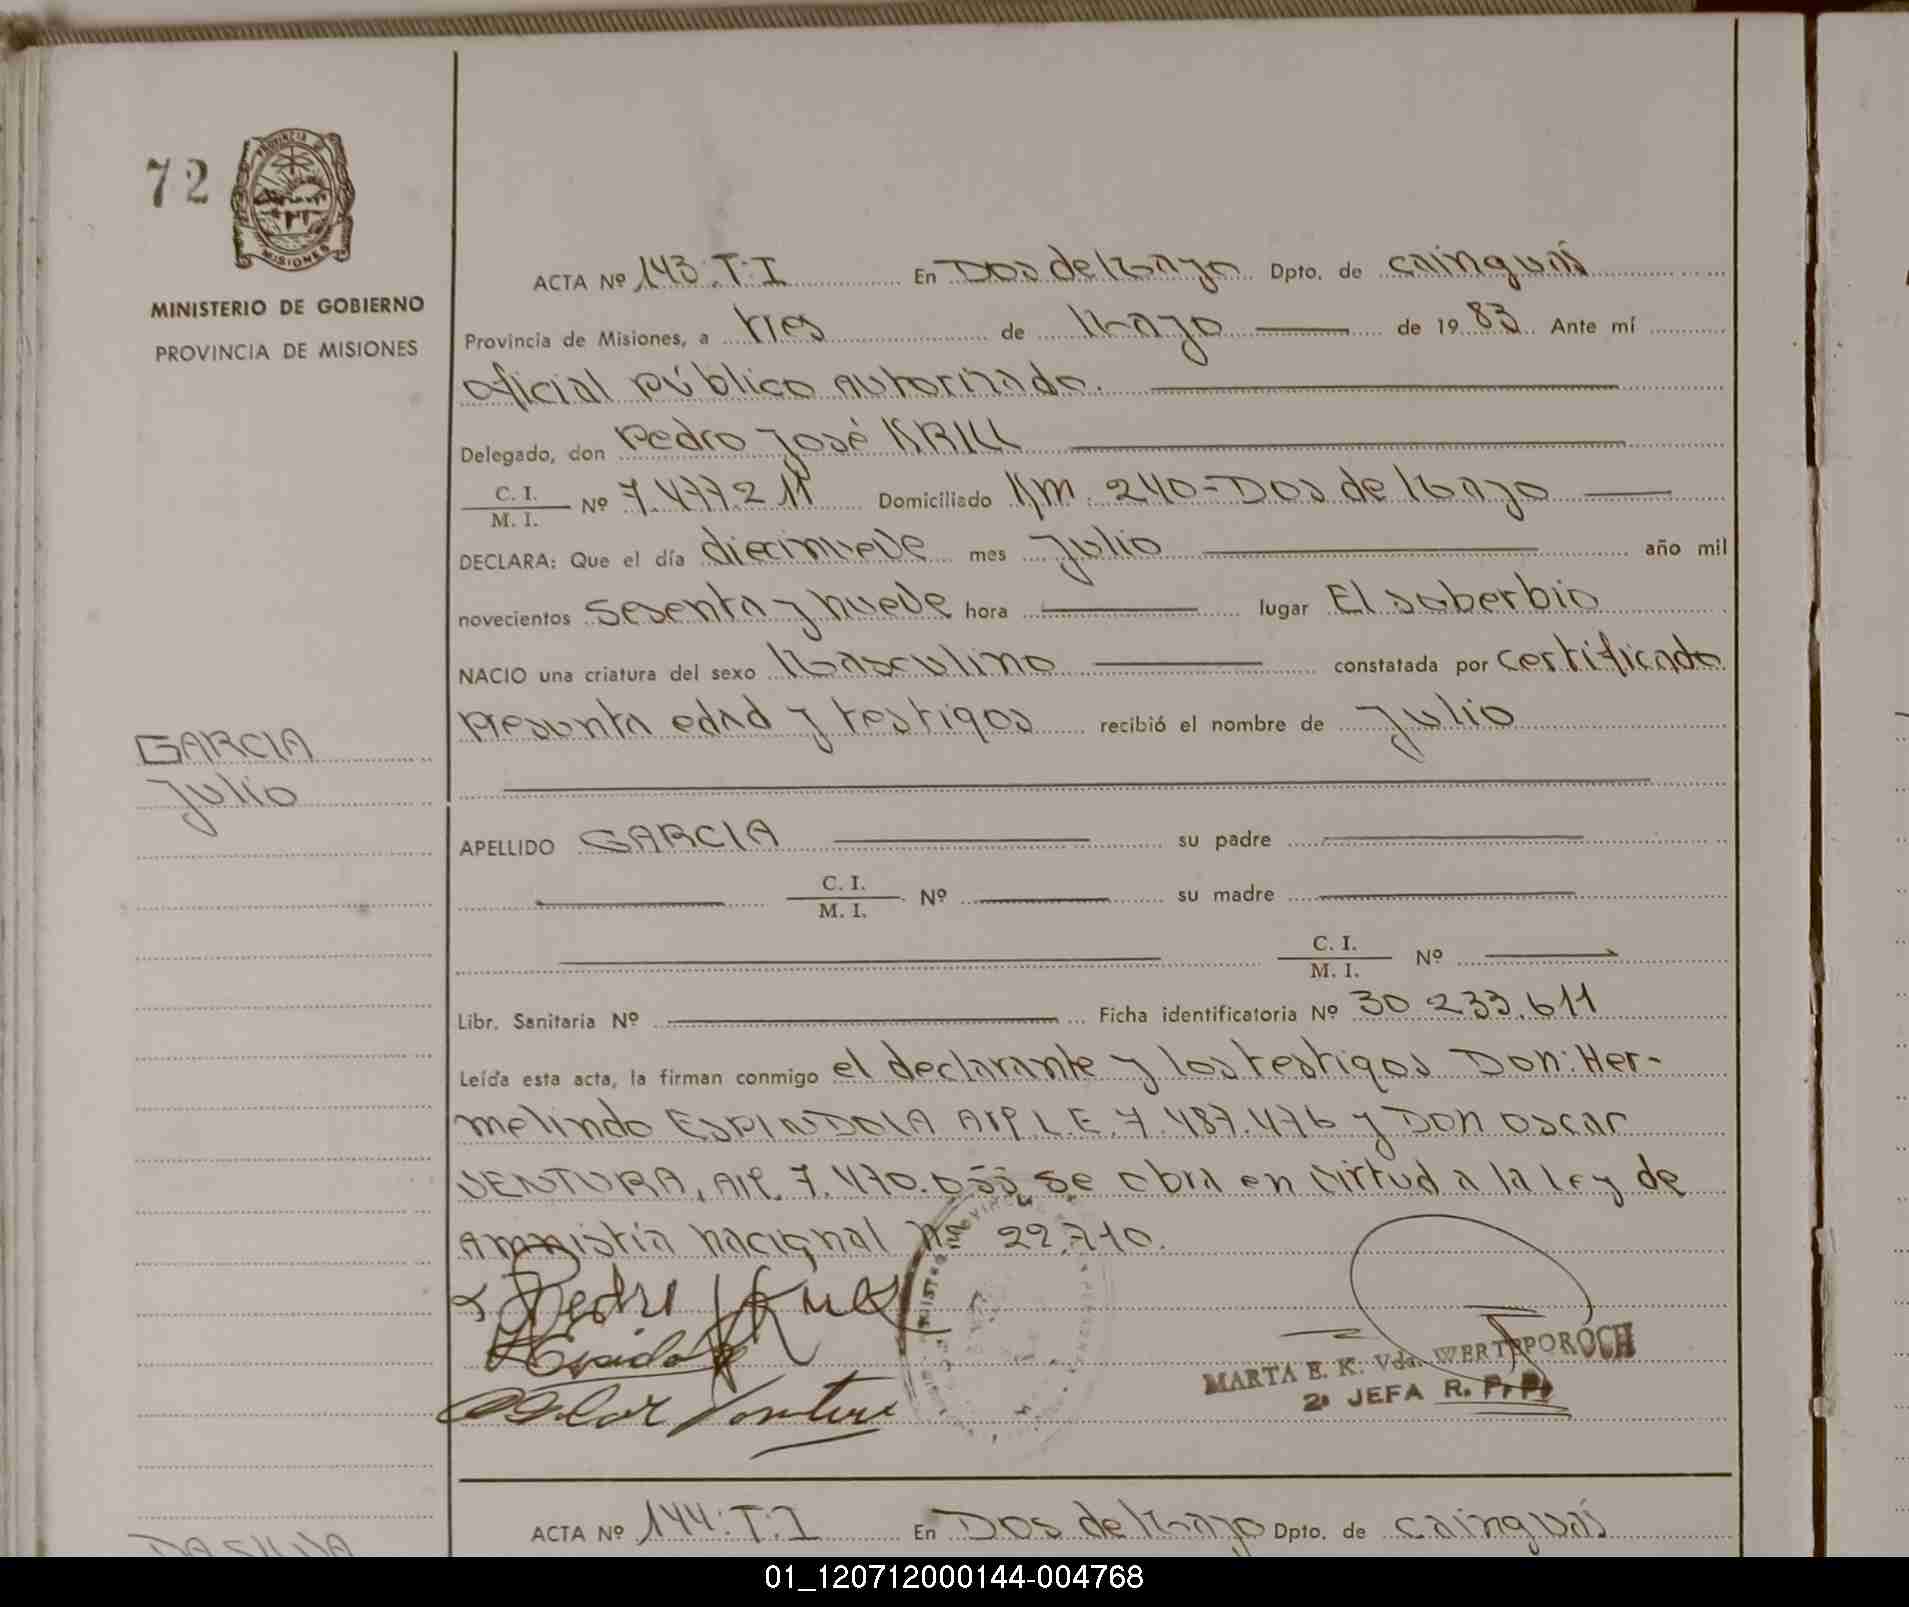 72
PROVINCIA DE
MISIONES
MINISTERIO DE GOBIERNO
PROVINCIA DE MISIONES
ACTA Nº 143.T.I En Dos de Mayo Dpto. de cainguás
Provincia de Misiones, a tres de Mayo de 1983. Ante mí
oficial público autorizado.
Delegado, don Pedro José KRILL
C. I.
M. I. Nº 7.477.211 Domiciliado Km. 240-Dos de Mayo
DECLARA: Que el día diecinueve mes Julio año mil
novecientos Sesenta y nueve hora lugar El soberbio
NACIO una criatura del sexo Masculino constatada por certificado
presunta edad y testigos recibió el nombre de Julio
GARCIA
Julio
APELLIDO GARCIA su padre
C. I.
M. I. Nº su madre
C. I.
M. I. Nº
Libr. Sanitaria Nº Ficha identificatoria Nº 30.233.611
Leída esta acta, la firman conmigo el declarante y los testigos Don: Her-
melindo ESPINDOLA L.E. 7.487.476 y Don Oscar
VENTURA, 7.470. se obra en virtud a la Ley de
Amnistía nacional Nº 22.710.
Pedro
Oscar Ventura
MARTA E. K. Vda. WERTEPOROCH
2ª JEFA R. P. P.
ACTA Nº 144.T.I En Dos de Mayo Dpto. de cainguás
DA SILVA
01_120712000144-004768